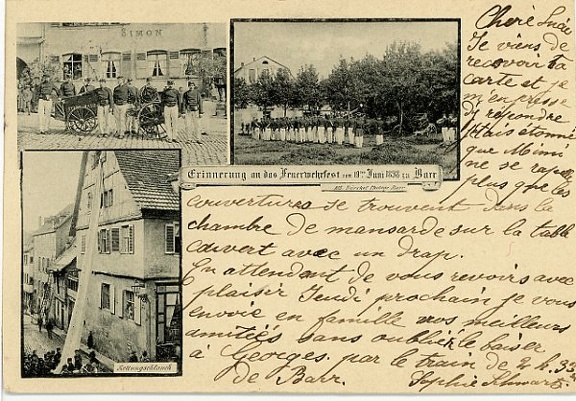 SIMON
Erinnerung an das Feuerwehrfest vom 10ten Juni 1898 zu Barr
Rettungsschlauch
Je viens de
recevoir ta
carte et je
m'empresse
d répondre
Mais étonné
que Mimi
ne se rapelle
plus que les
couvertures se trouvent dans la
chambre de mansarde sur la table
couvert avec un drap.
En attendant de vous revoirs avec
plaisir Jeudi prochain je vous
envoie en famille nos meilleurs
amitiés sans oublier le baiser
à Georges. par le train de 2 h. 33
de Barr. Sophie Schwartz